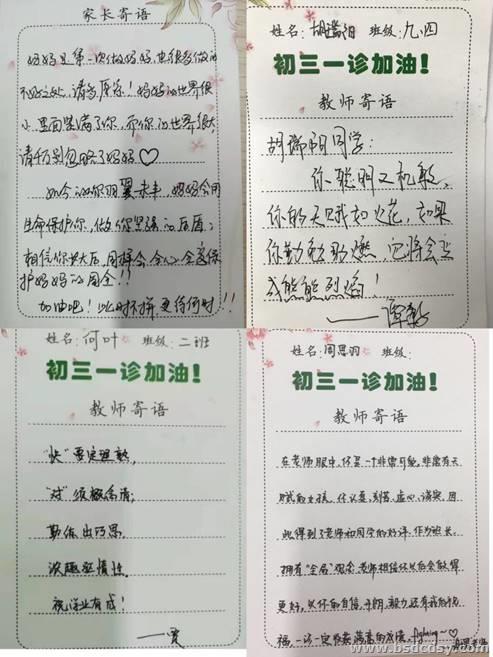 家长寄语
妈妈是第一次做妈妈,也很多做的
不好之处,请多原谅!妈妈的世界很
小,里面装满了你,而你的世界很大,
请千万别忽略了妈妈♡
如今的你羽翼未丰,妈妈会用
生命保护你,做你坚强的后盾;
相信你长大后,同样会全心全意保
护妈妈的周全!!
加油吧!此时不拼更待何时!!
姓名:胡瑞阳 班级:九.四
初三一诊加油!
教师寄语
胡瑞阳同学:
你聪明又机敏,
你的天赋如火花,如果
你勤奋助燃,它将会变
成熊熊烈焰!
姓名:何叶 班级:二班
初三一诊加油!
教师寄语
"快"要定理熟,
"对"须概念清;
勤练出巧思,
祝学业有成!
姓名:周思羽 班级:
初三一诊加油!
教师寄语
在老师眼中,你是一个非常可爱,非常有天
赋的女孩,你认真,刻苦,虚心,诚实,因
此得到了老师和同学的好评,作为班长,
拥有"全局"观念,老师相信你以后会做得
更好,以你的自信,开朗,毅力还有我的祝
福,一诊一定能考满意的成绩,fighting~♡
www.bsdcdsy.com